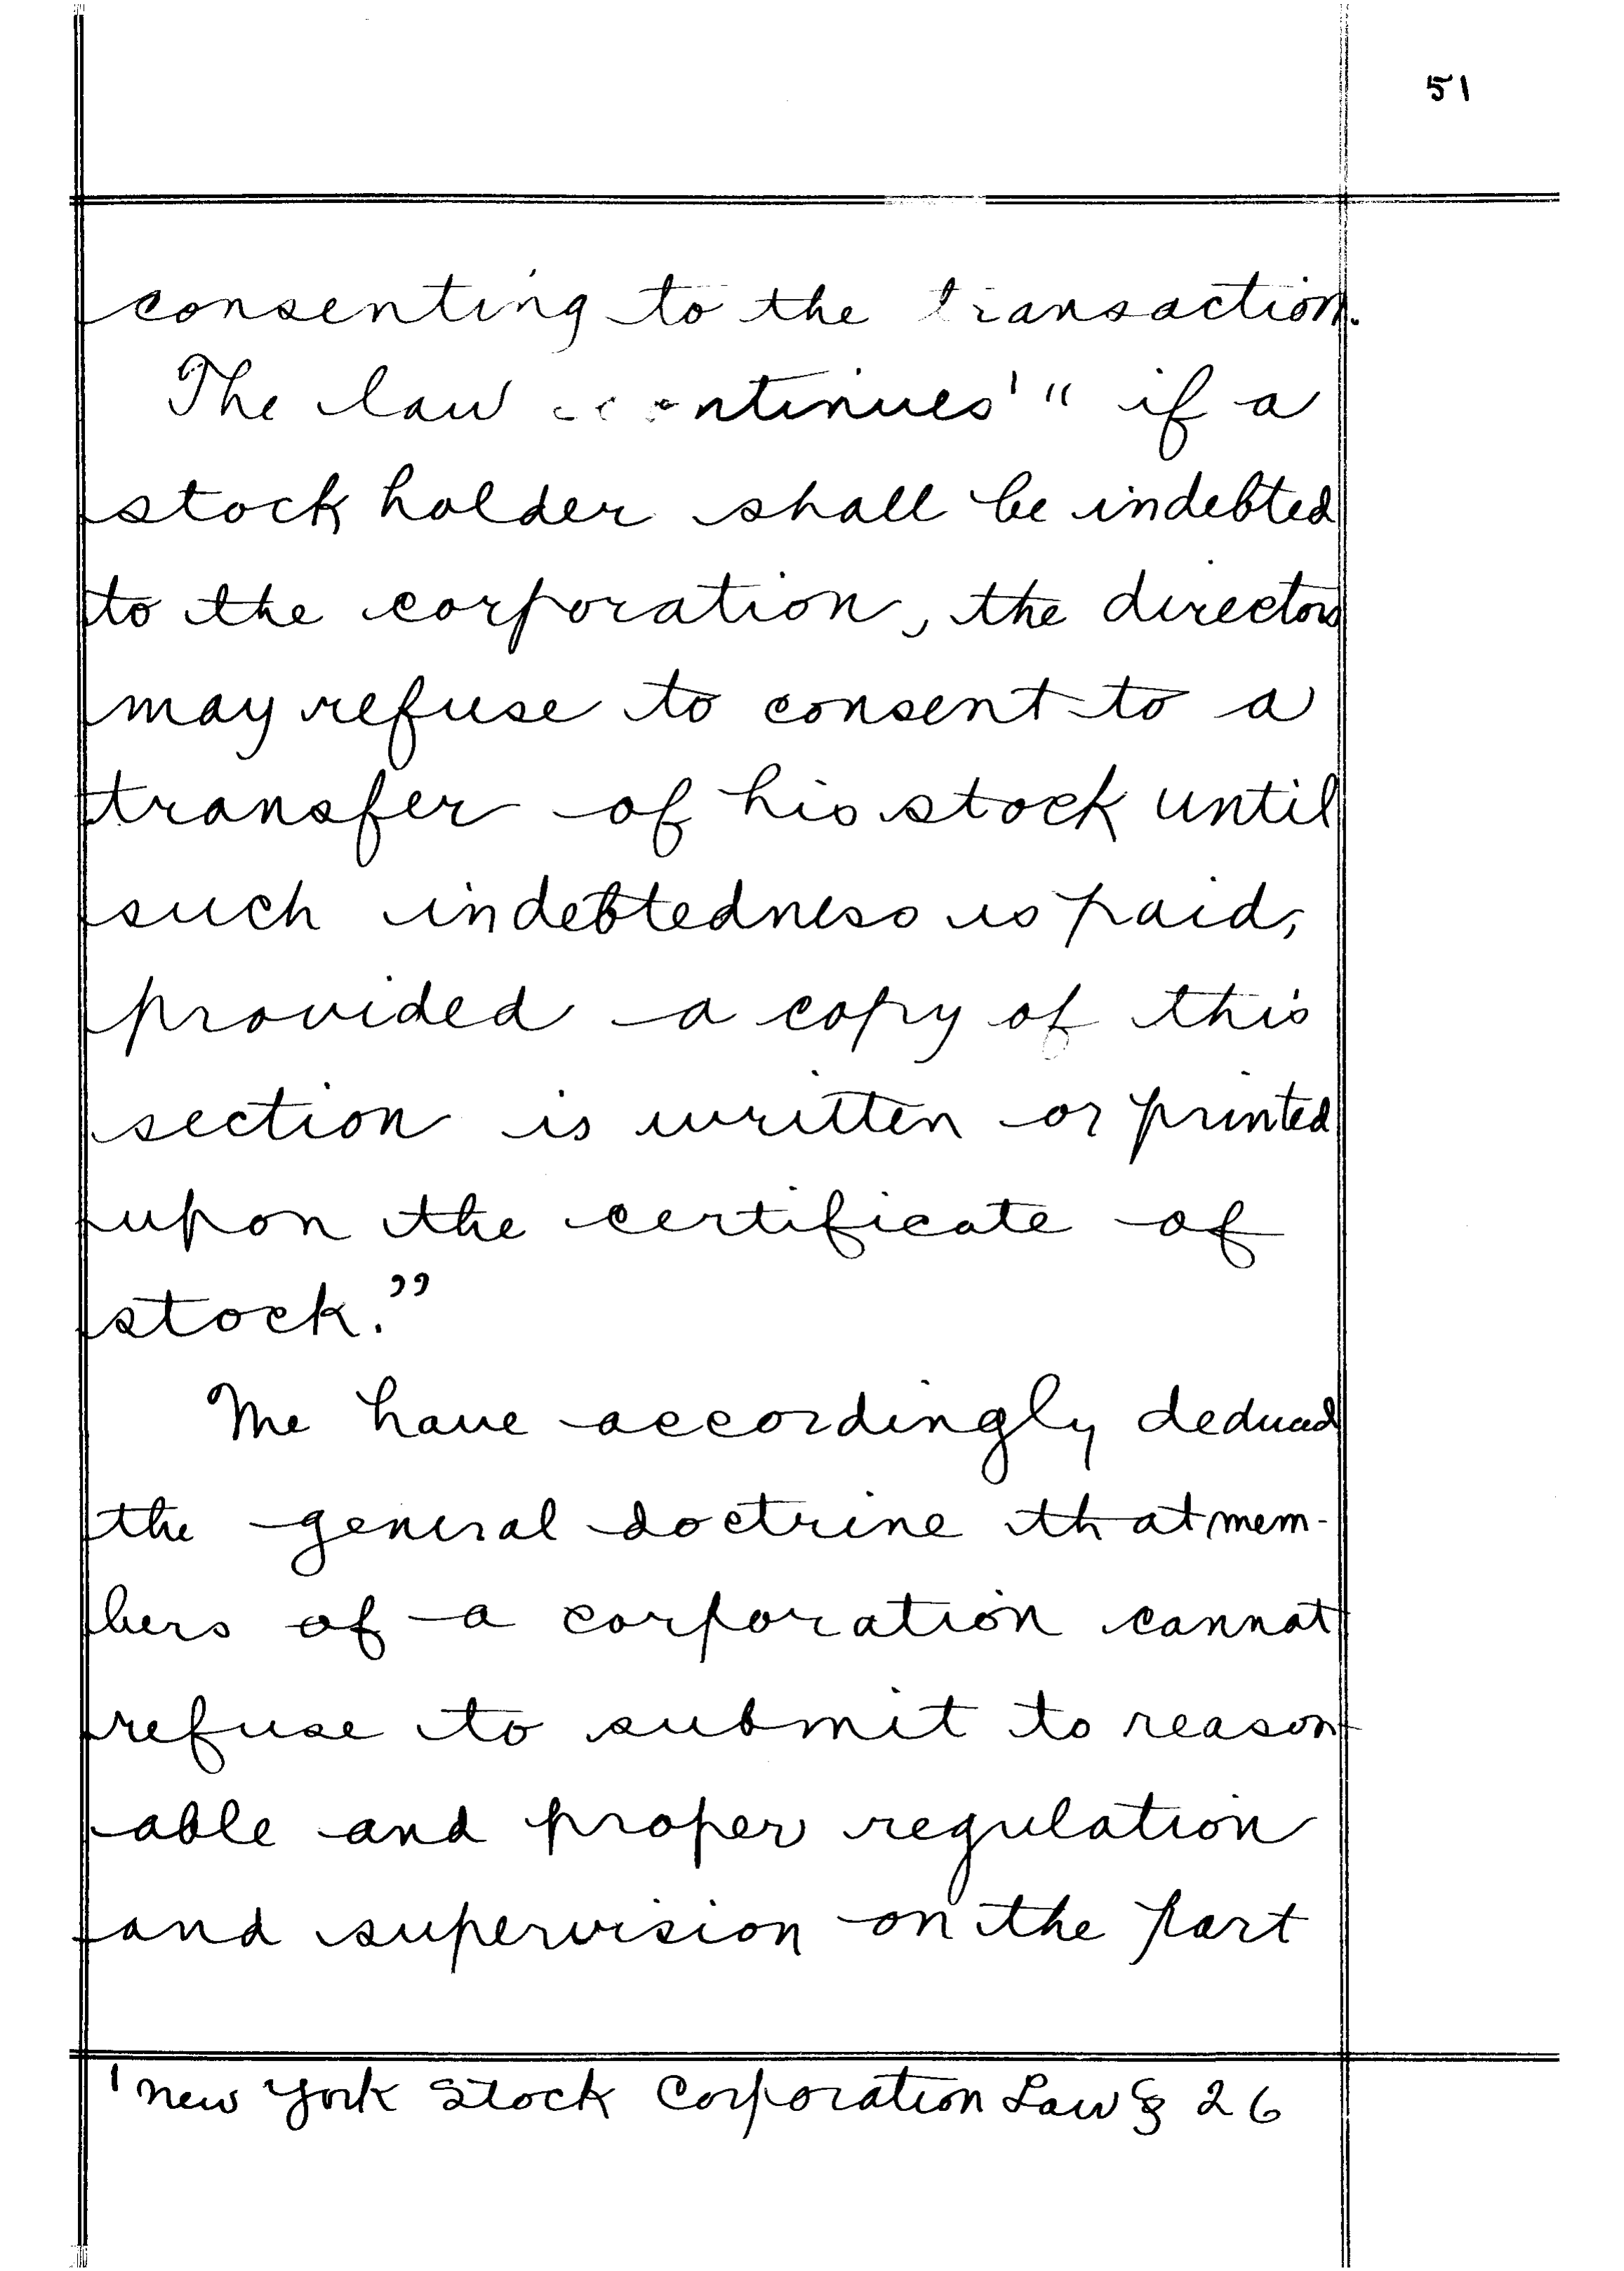 51
consenting to the transaction.
The law continues¹ " if a
stock holder shall be indebted
to the corporation, the directors
may refuse to consent to a
transfer of his stock until
such indebtedness is paid,
provided a copy of this
section is written or printed
upon the certificate of
stock."
We have accordingly deduced
the general doctrine that mem-
bers of a corporation cannot
refuse to submit to reason-
able and proper regulation
and supervision on the part
¹ New York Stock Corporation Law § 26